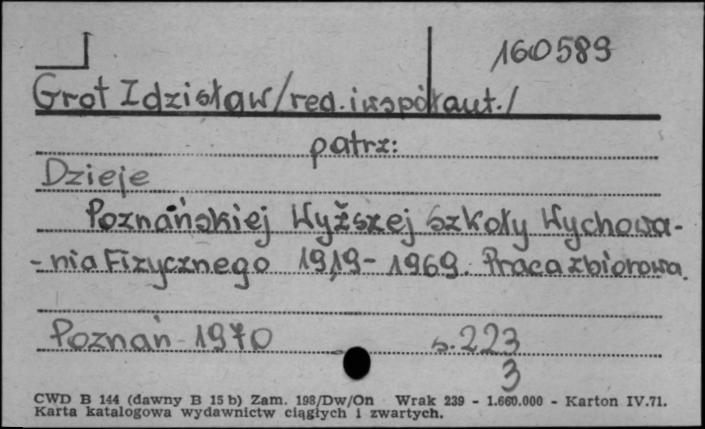 160589
Grot Zdzisław/red. i współaut./
patrz:
Dzieje
Poznańskiej Wyższej Szkoły Wychowa-
-nia Fizycznego 1919-1969. Praca zbiorowa.
Poznań 1970 s. 223
3
CWD B 144 (dawny B 15 b) Zam. 198/Dw/On Wrak 239 - 1.660.000 - Karton IV.71.
Karta katalogowa wydawnictw ciągłych i zwartych.